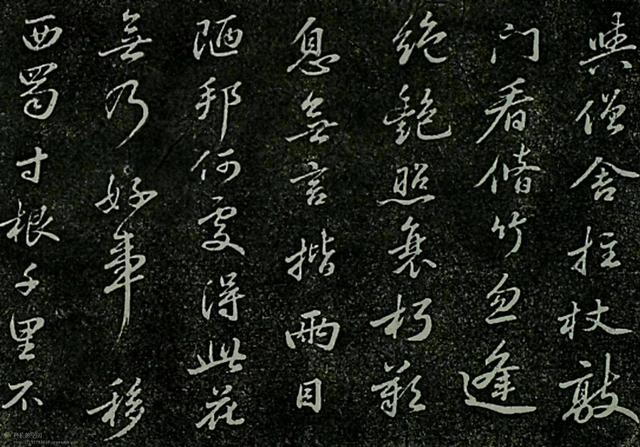 與僧舍拄杖敲
門看脩竹忽逢
絕艷照衰朽歎
息無言揩兩目
陋邦何處得此花
無乃好事移
西蜀寸根千里不